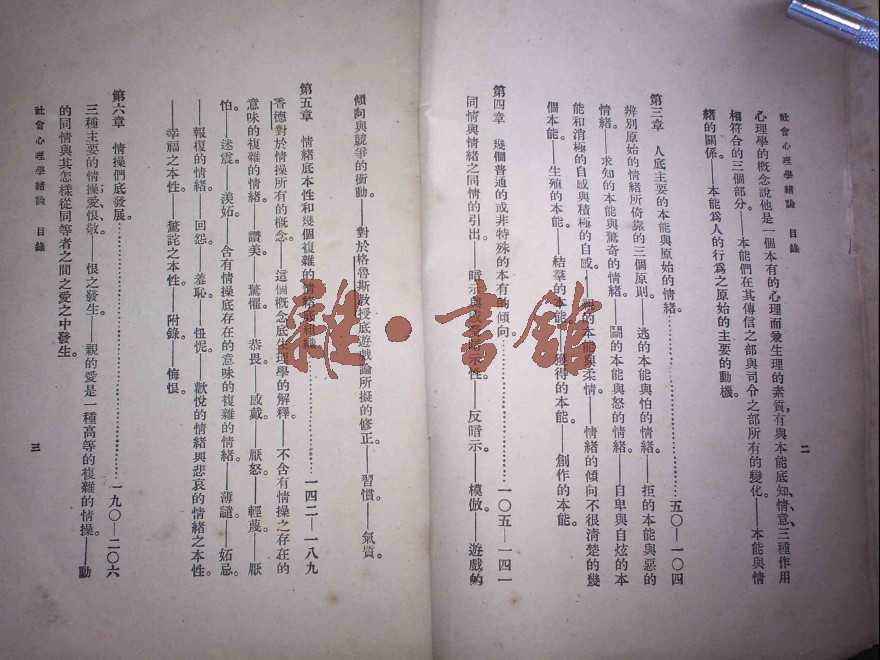 社會心理學緒論 目錄
二
心理學的概念說他是一個本有的心理而兼生理的素質,有與本能底知、情、意、三種作用
相符合的三個部分。——本能們在其傳信之部與司令之部所有的變化。——本能與情
緒的關係。——本能爲人的行爲之原始的主要的動機。
第三章 人底主要的本能與原始的情緒。…………五〇—一〇四
辨別原始的情緒所倚靠的三個原則。——逃的本能與怕的情緒。——拒的本能與惡的
情緒。——求知的本能與驚奇的情緒。——鬪的本能與怒的情緒。——自卑與自炫的本
能和消極的自感與積極的自感。——的本能與柔情。——情緒的傾向不很清楚的幾
個本能。——生殖的本能。——結羣的本能。——獲得的本能。——創作的本能。
第四章 幾個普通的或非特殊的本有的傾向。…………一〇五—一四一
同情與情緒之同情的引出。——暗示與暗示性。——反暗示。——模倣。——遊戲的
傾向與競爭的衝動。——對於格魯斯教授底遊戲論所擬的修正。——習慣。——氣質。
第五章 情緒底本性和幾個複雜的情緒底組織。…………一四二—一八九
香德對於情操所有的概念。——這個概念底生理學的解釋。——不含有情操之存在的
意味的複雜的情緒。——讚美。——驚懼。——恭畏。——感戴。——厭怒。——輕蔑。——厭
怕。——迷震。——羨妬。——含有情操底存在的意味的複雜的情緒。——薄譴。——妬忌。
——報復的情緒。——回怨。——羞恥。——忸怩。——歡悅的情緒與悲哀的情緒之本性。
——幸福之本性。 驚詫之本性。——附錄。——悔恨。
第六章 情操們底發展。…………一九〇—二〇六
三種主要的情操愛、恨、敬。——恨之發生。——親的愛是一種高等的複雜的情操。——動
的同情與其怎樣從同等者之間之愛之中發生。
社會心理學緒論 目錄
三
雜·書館